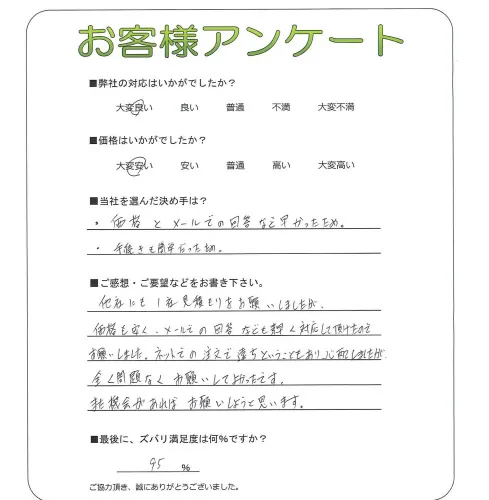 お客様アンケート
■弊社の対応はいかがでしたか？
大変良い 良い 普通 不満 大変不満
■価格はいかがでしたか？
大変安い 安い 普通 高い 大変高い
■当社を選んだ決め手は？
・価格とメールでの回答など早かったため。
・手続きも簡単だった為。
■ご感想・ご要望などをお書き下さい。
他社にも1社見積もりをお願いしましたが、
価格も安く、メールでの回答なども素早く対応して頂けたので
お願いしました。ネットでの注文で落ちということもあり心配しましたが、
全く問題なくお願いしてよかったです。
又機会があればお願いしようと思います。
■最後に、ズバリ満足度は何%ですか？
95 %
ご協力頂き、誠にありがとうございました。